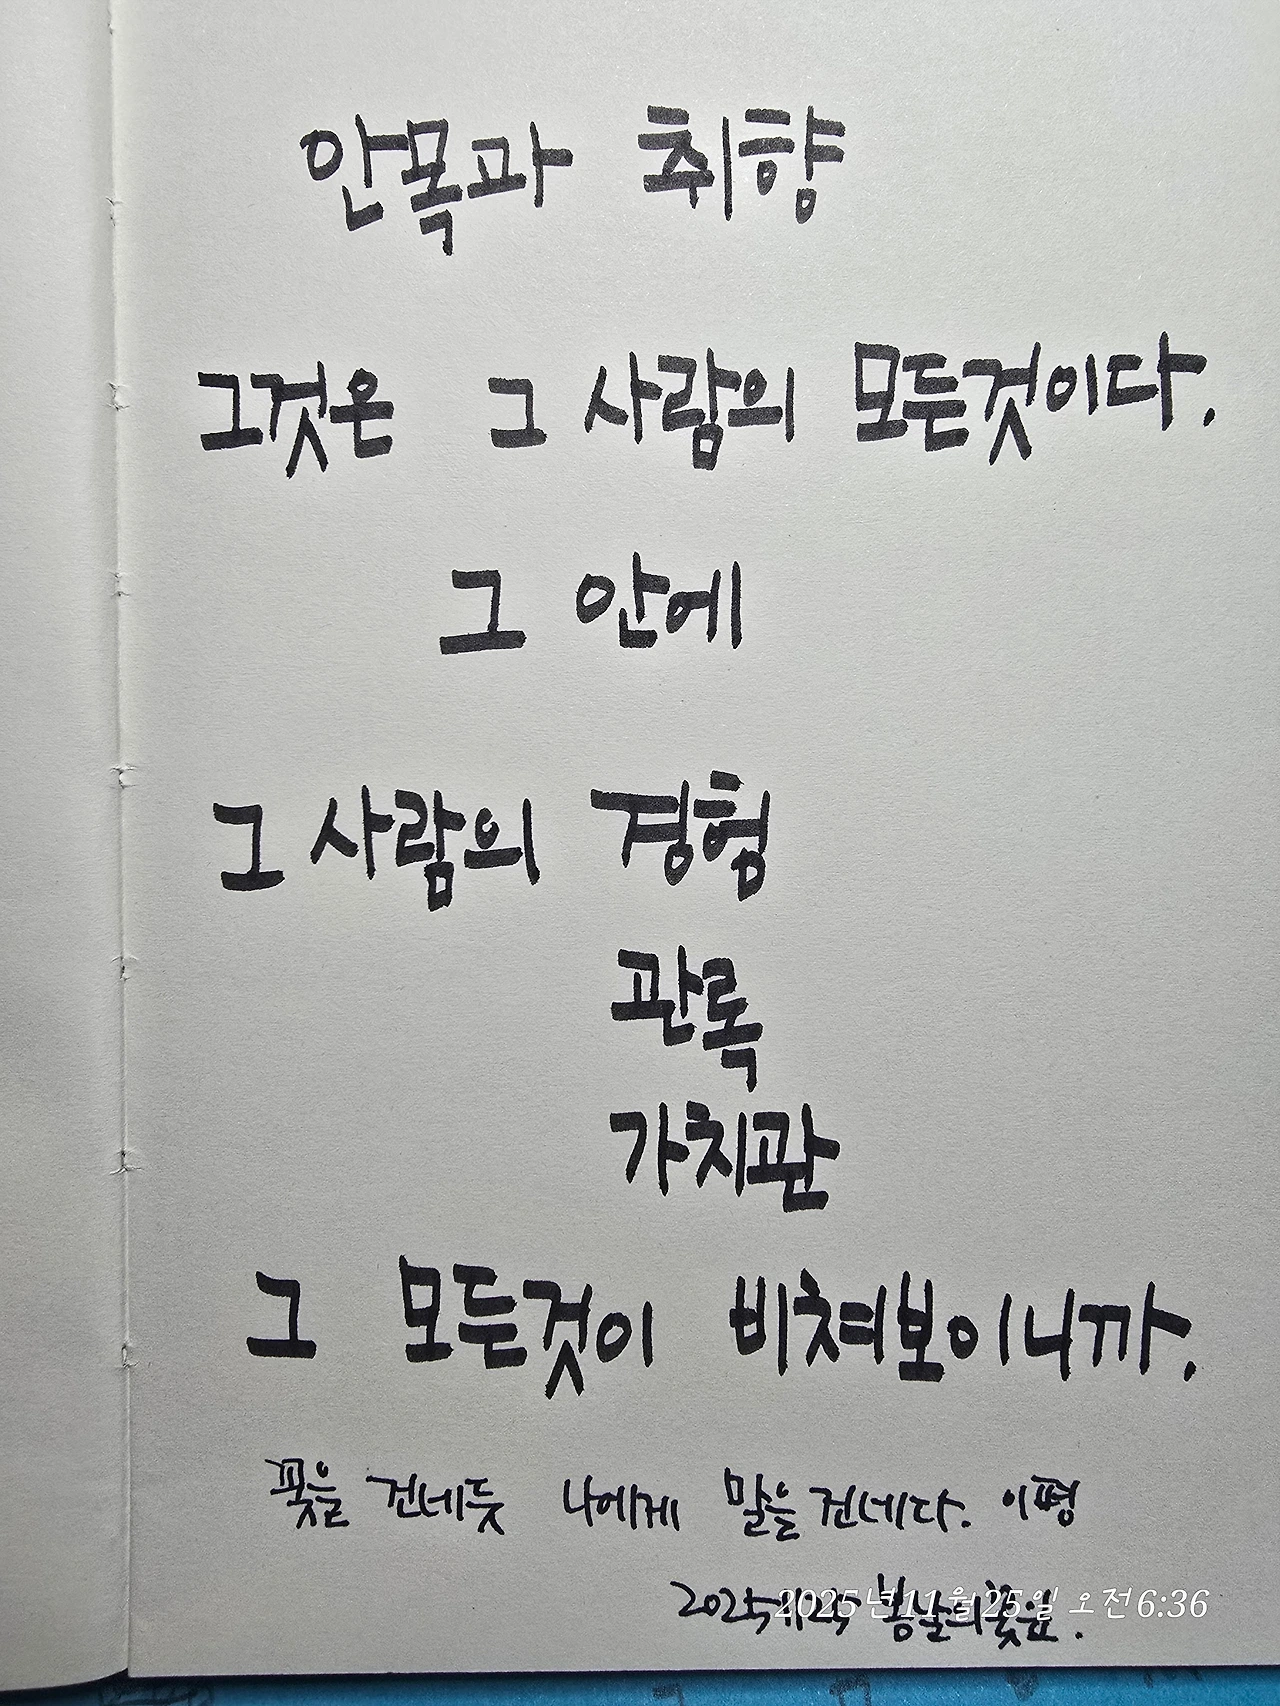 안목과 취향
그것은 그 사람의 모든것이다.
그 안에
그 사람의 경험
관록
가치관
그 모든것이 비쳐보이니까.
꽃을 건네듯 나에게 말을 건네다. 이평
20251125 봄날의꽃잎.
2025년11월25일 오전6:36